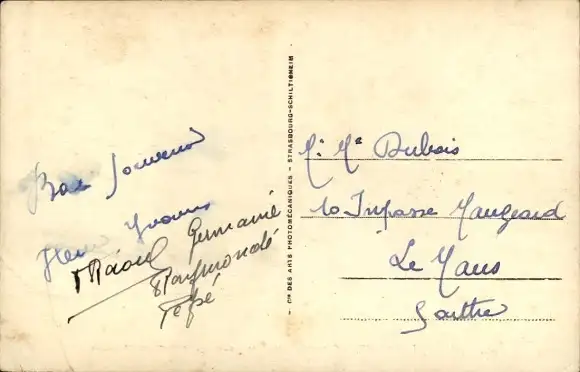 Bon Souvenir
Henri Yvonne
Raoul Germaine
Raymonde
Pépé
Cie DES ARTS PHOTOMÉCANIQUES - STRASBOURG-SCHILTIGHEIM
Mr Me Dubois
10 Impasse Maugeard
Le Mans
Sarthe